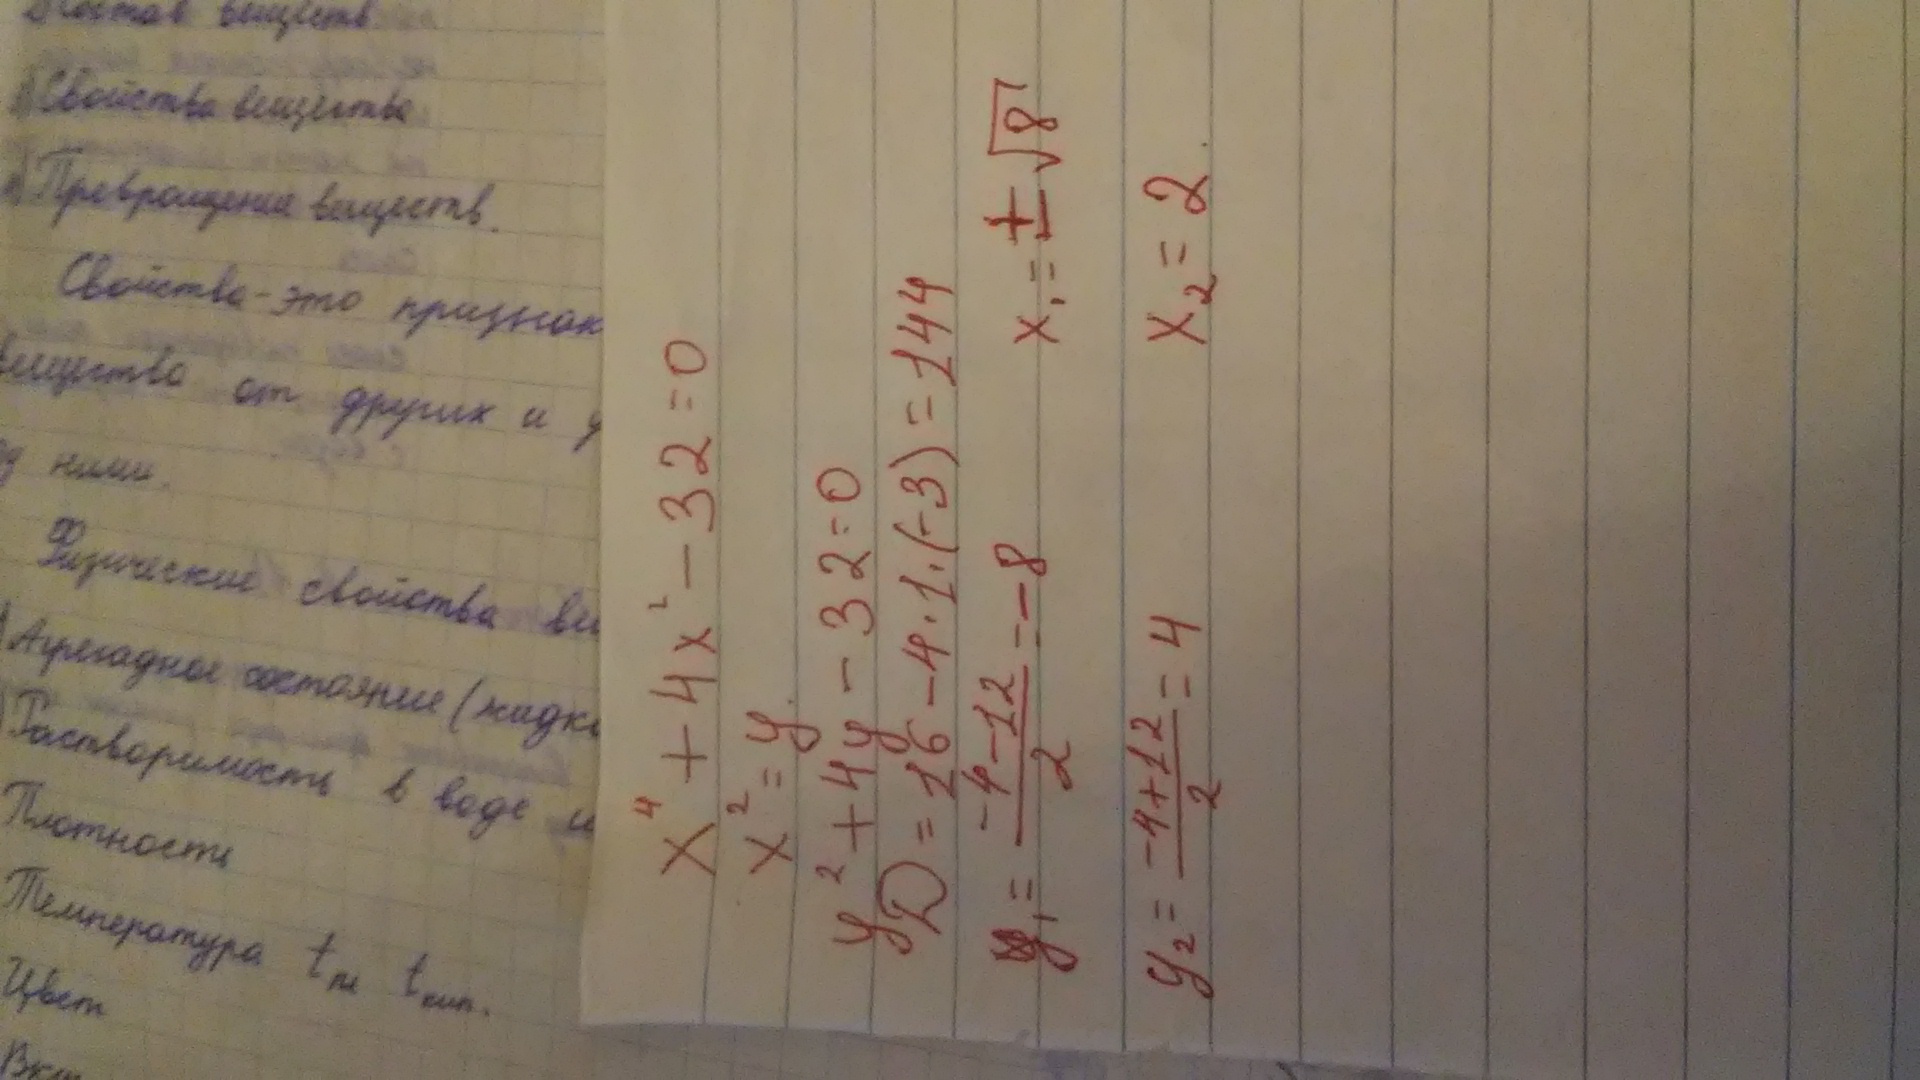 Состав веществ
Свойства вещества
Превращения веществ.
Свойства-это признак
вещество от других и у
ними.
Физические свойства ве
Агрегадное состояние (жидк
Растворимость в воде и
Плотность
Температура tпл tкип.
Цвет
Вкус
x⁴+4x²-32=0
x²=y.
y²+4y-32=0
D=16-4·1·(-3)=144
y₁=(-4-12)/2=-8 x₁=±√8
y₂=(-4+12)/2=4 x₂=2.